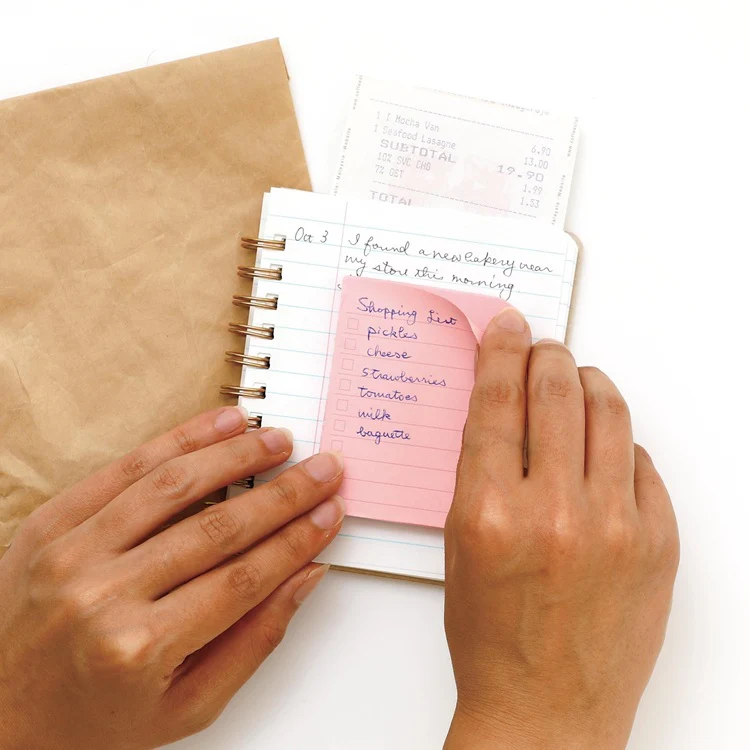 1 I Mocha Van 6.90
1 Seafood Lasagne 13.00
SUBTOTAL 19.90
10% SVC CHG 1.99
7% GST 1.53
TOTAL
Oct 3 I found a new bakery near
my store this morning
Shopping List
pickles
cheese
strawberries
tomatoes
milk
baguette